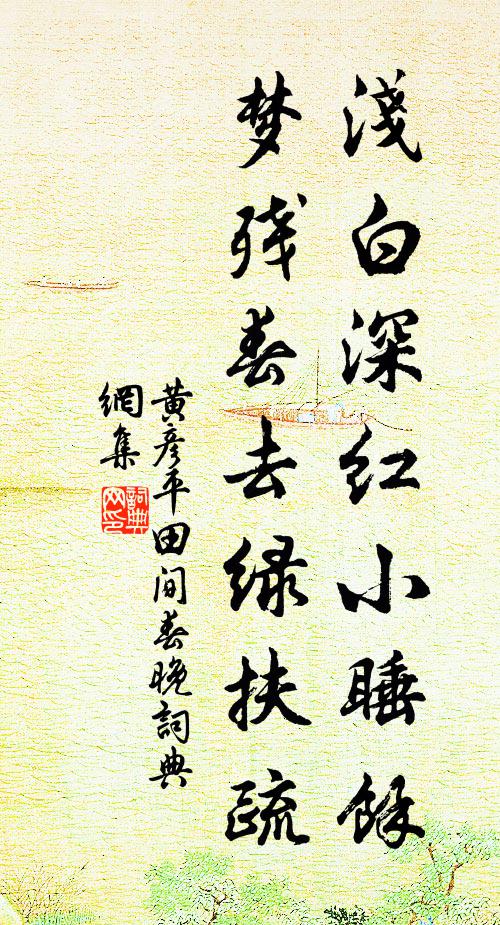 淺白深红小睡餘
梦残春去绿扶疏
黄彦平田间春晚詞典
網集
詞典
网印